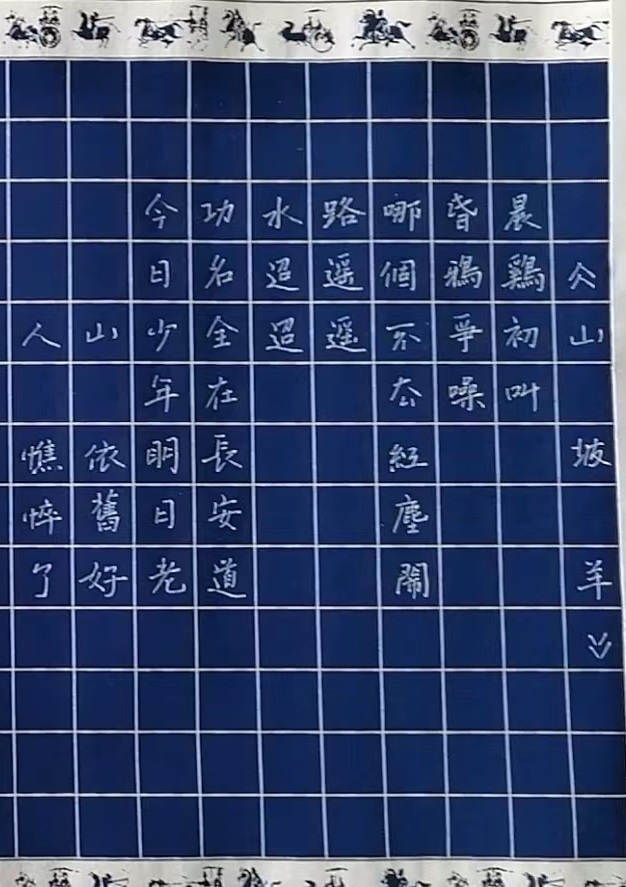 《山坡羊》
晨鷄初叫
昏鴉爭噪
哪個不去紅塵鬧
路遥遥
水迢迢
功名全在長安道
今日少年明日老
山 依舊好
人 憔悴了